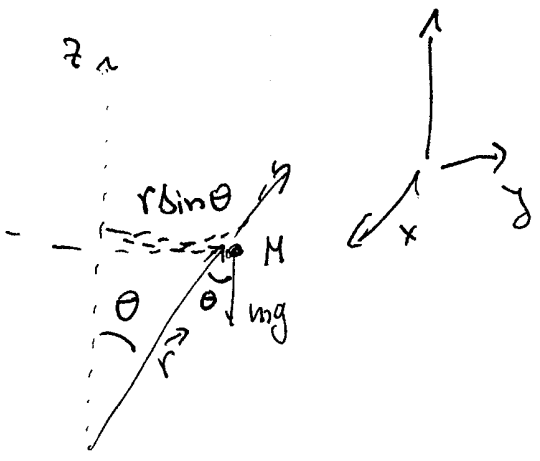 z
r sin θ
M
θ
θ
mg
r
x
y